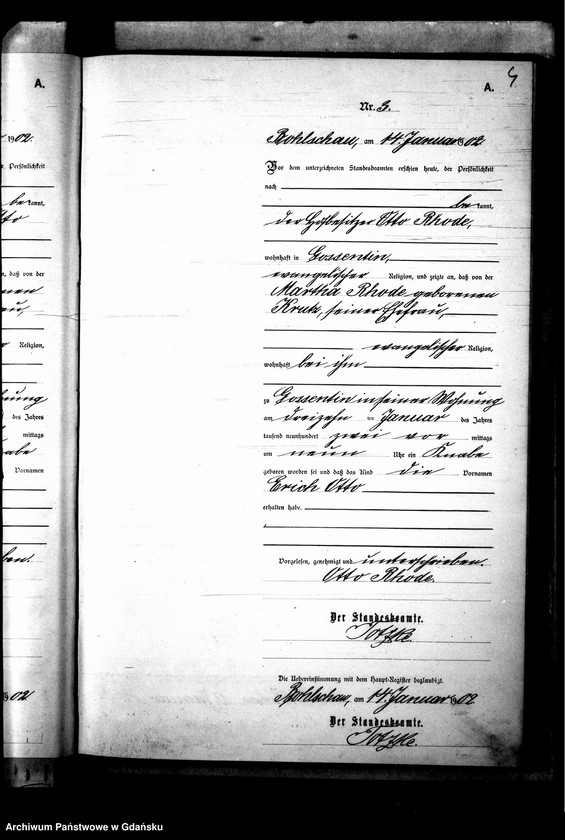 A.
A.
Nr. 3.
1902.
Bohlschau, am 14. Januar 1902
Persönlichkeit
Vor dem unterzeichneten Standesbeamten erschien heute, der Persönlichkeit
nach
be kannt,
be kannt,
der Hofbesitzer Otto Rhode,
wohnhaft in Gossentin,
n, daß von der
evangelischer Religion, und zeigte an, daß von der
Martha Rhode geborenen
Krutz, seiner Ehefrau,
Religion,
evangelischer Religion,
wohnhaft bei ihm
zu Gossentin in seiner Wohnung
des Jahres
am dreizehn ten Januar des Jahres
mittags
tausend neunhundert zwei vor mittags
um neun Uhr ein Knabe
Vornamen
geboren worden sei und daß das Kind die Vornamen
Erich Otto
erhalten habe.
Vorgelesen, genehmigt und unterschrieben.
Otto Rhode.
Der Standesbeamte.
Totzke.
Die Uebereinstimmung mit dem Haupt-Register beglaubigt.
1902
Bohlschau, am 14. Januar 1902
Der Standesbeamte.
Totzke.
Archiwum Państwowe w Gdańsku